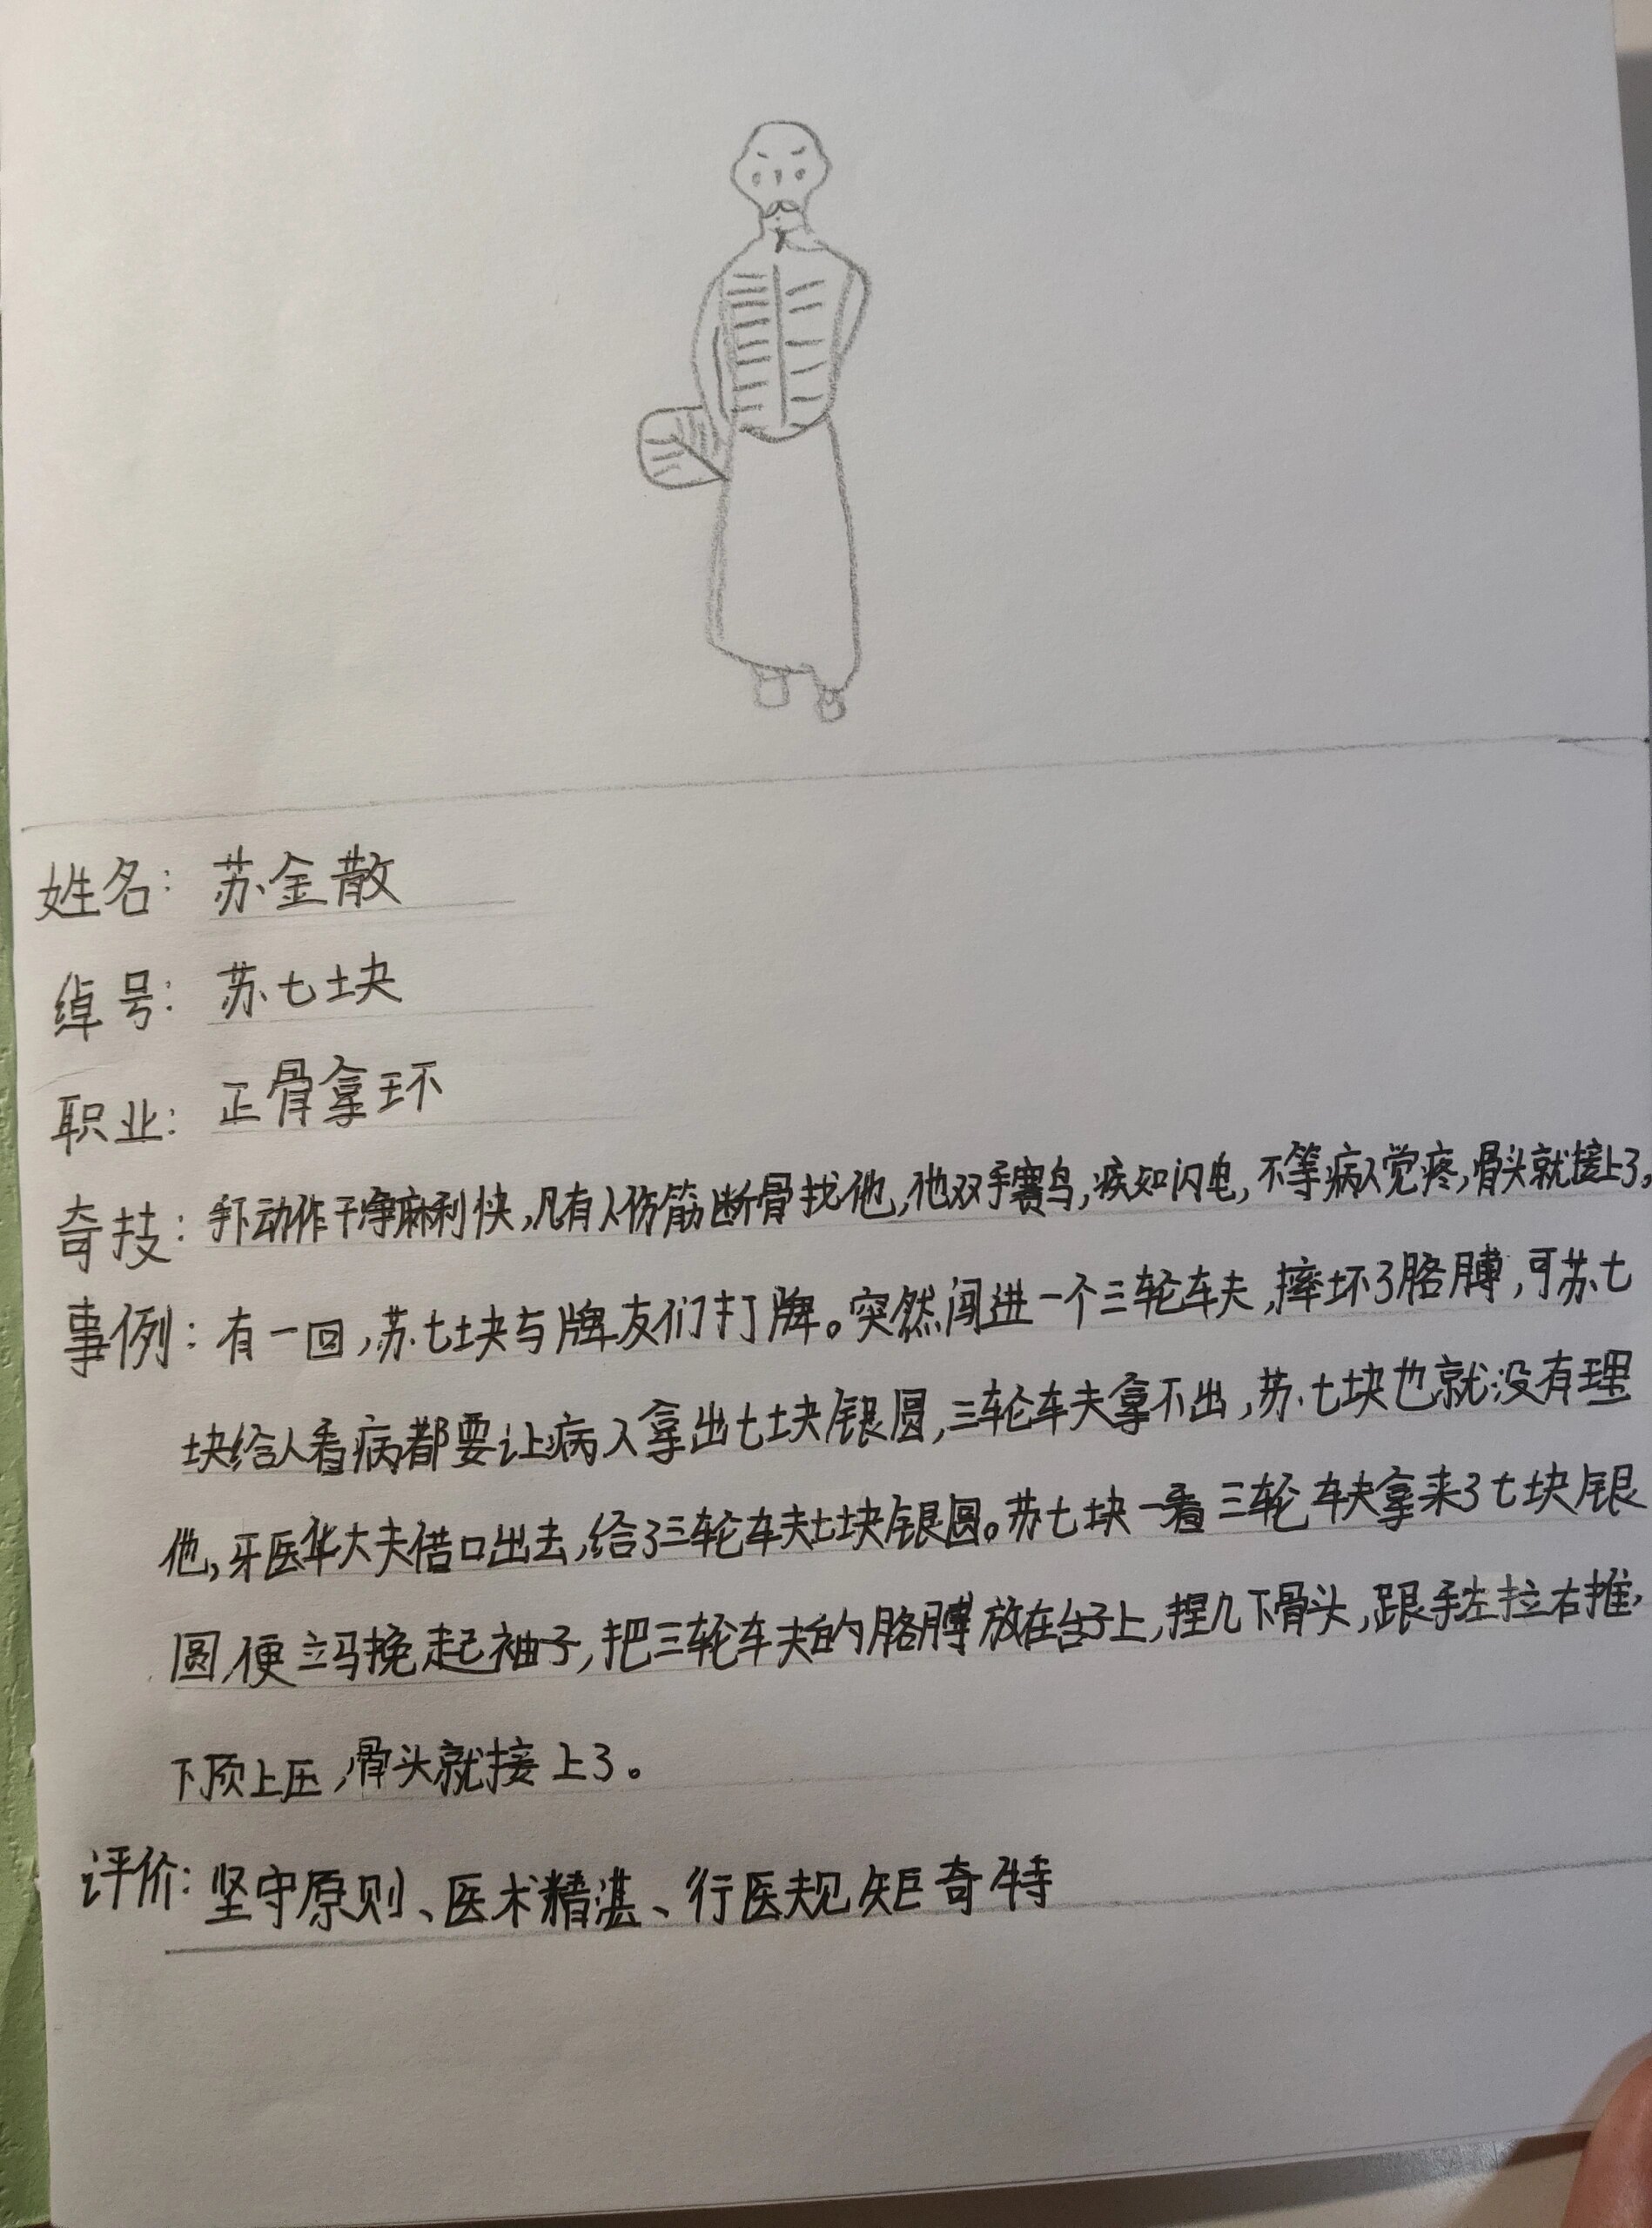 姓名：苏金散
绰号：苏七块
职业：正骨拿环
奇技：手下动作干净麻利快，凡有人伤筋断骨找他，他双手赛鸟，疾如闪电，不等病人觉疼，骨头就接上了，
事例：有一回，苏七块与牌友们打牌。突然闯进一个三轮车夫，摔坏了胳膊，可苏七
块给人看病都要让病人拿出七块银圆，三轮车夫拿不出，苏七块也就没有理
他，牙医华大夫借口出去，给了三轮车夫七块银圆。苏七块一看三轮车夫拿来了七块银
圆，便立马挽起袖子，把三轮车夫的胳膊放在台子上，捏几下骨头，跟手左拉右推，
下顶上压，骨头就接上了。
评价：坚守原则、医术精湛、行医规矩奇特